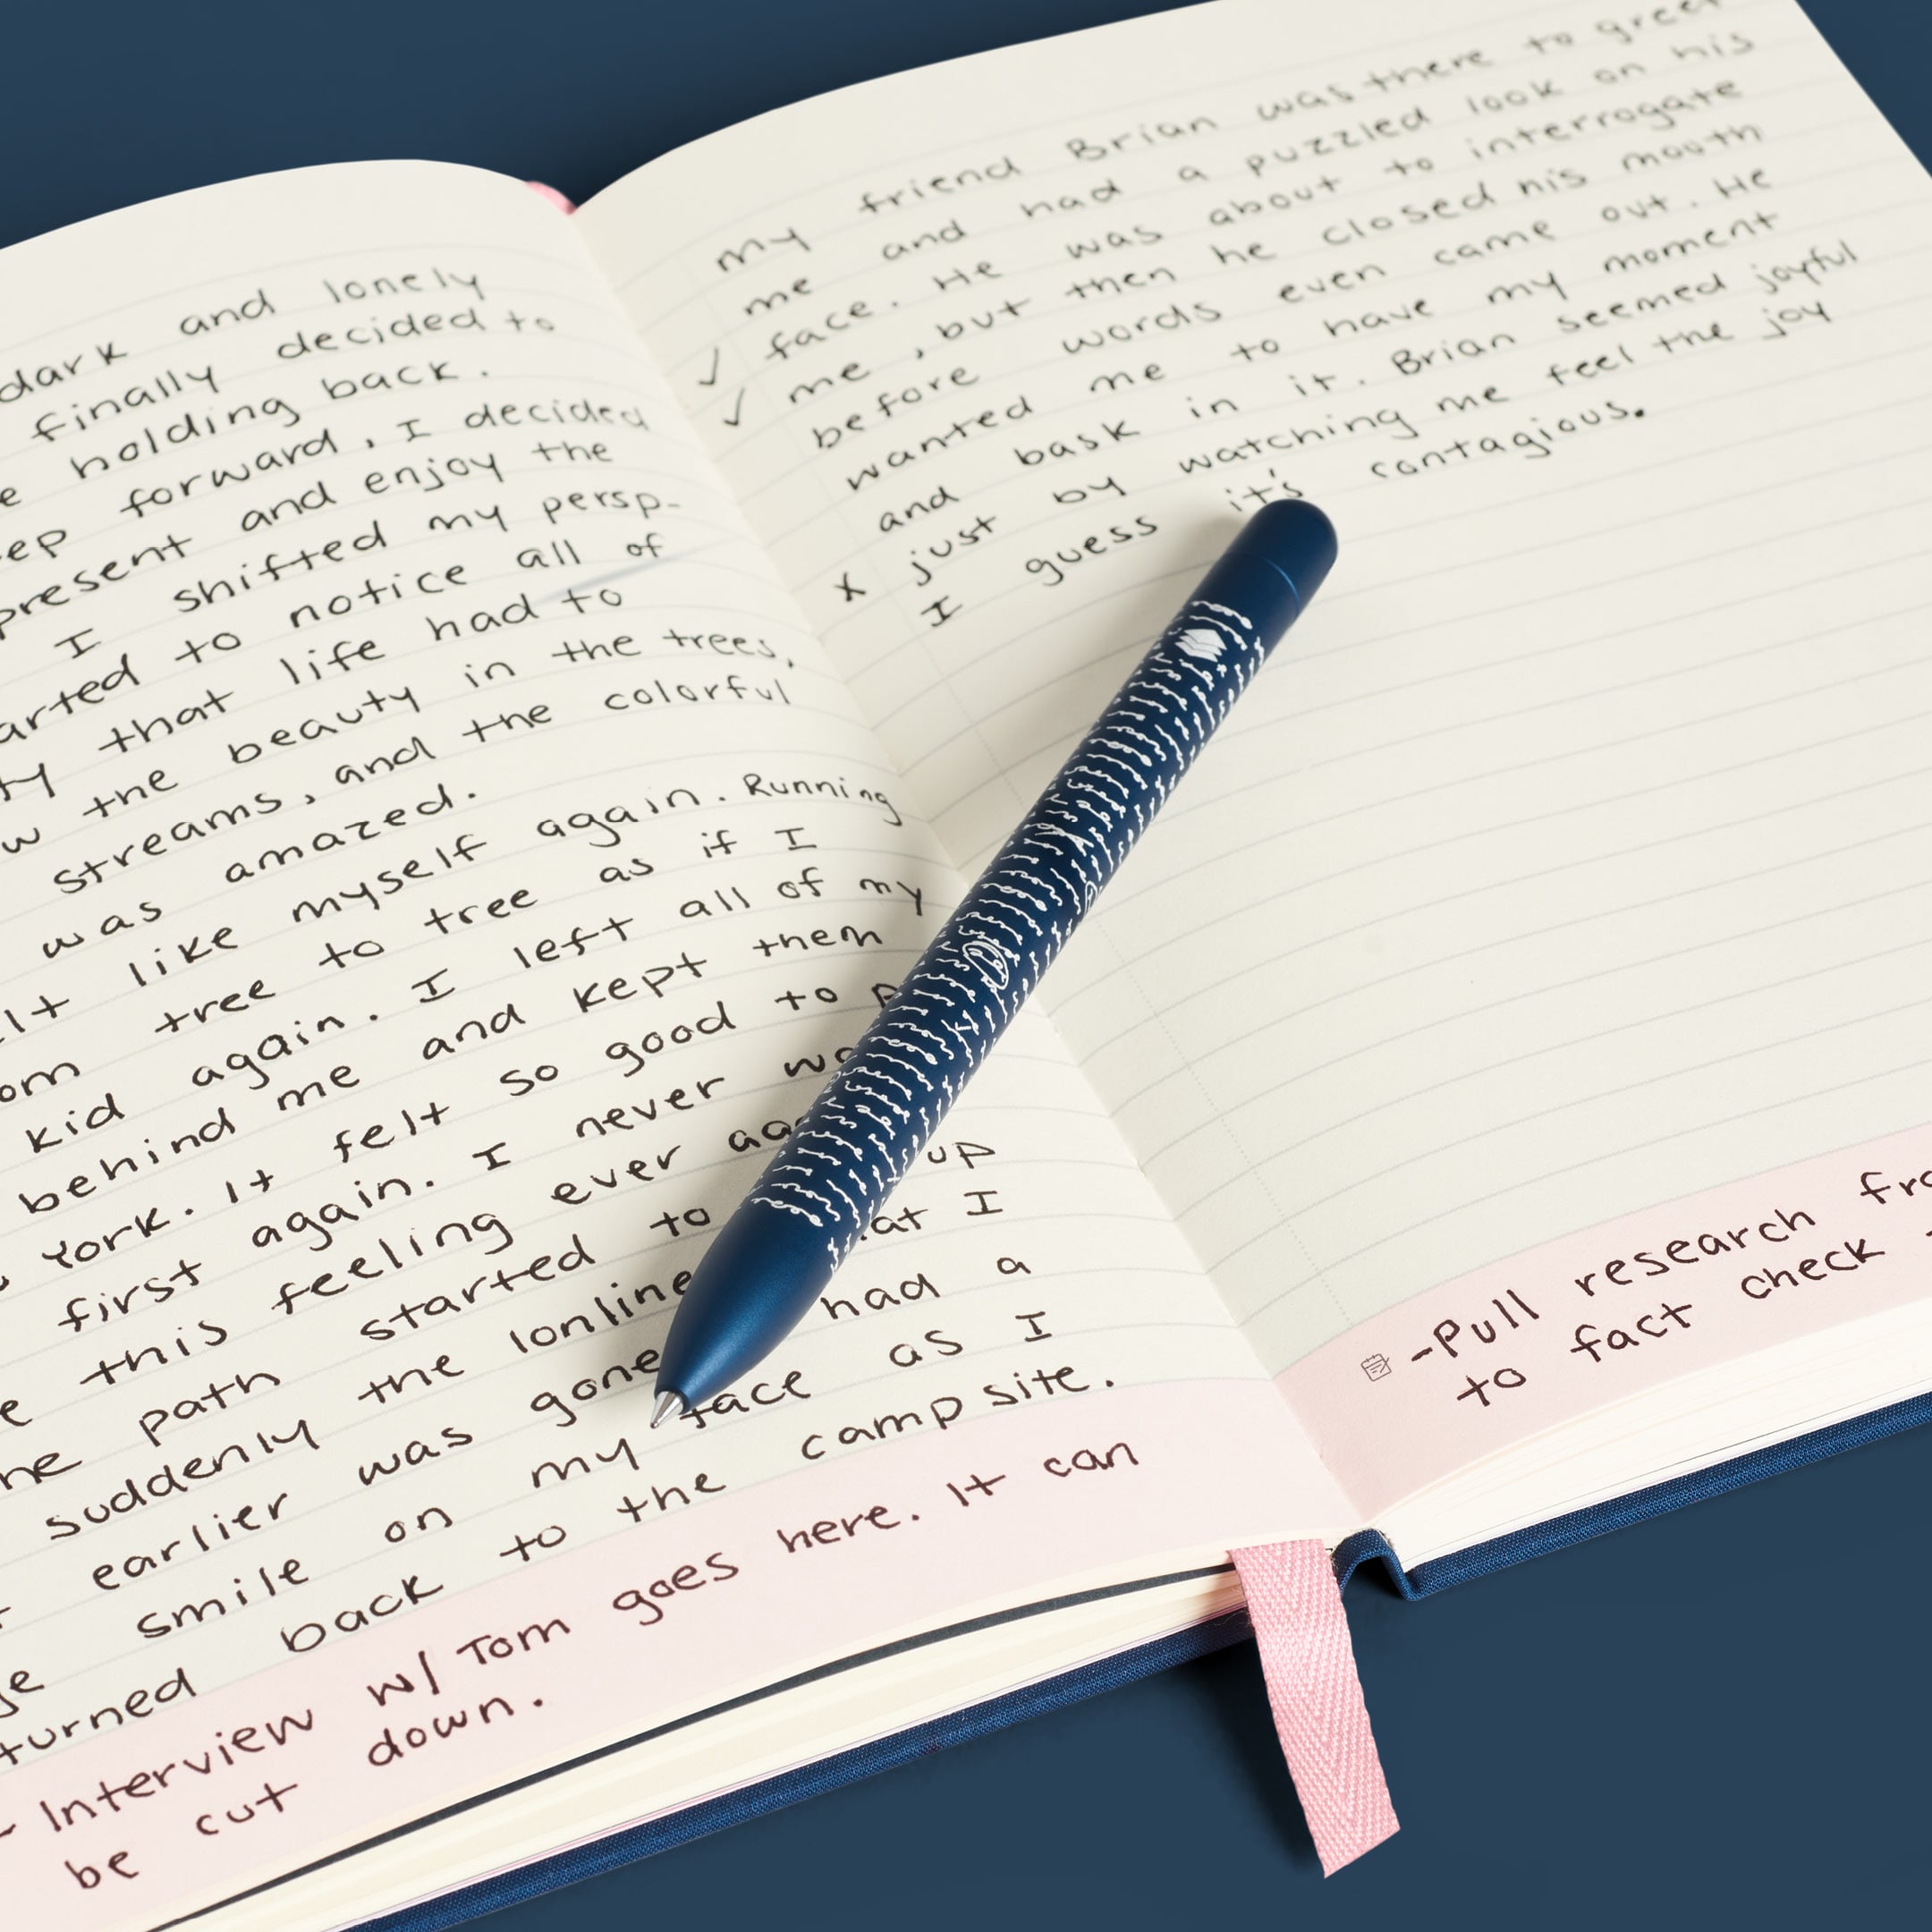 dark and lonely
finally decided to
e holding back.
ep forward, I decided
present and enjoy the
I shifted my persp-
arted to notice all of
ty that life had to
w the beauty in the trees,
streams, and the colorful
was amazed.
lt like myself again. Running
om tree to tree as if I
kid again. I left all of my
behind me and kept them
York. It felt so good to
first again. I never
e this feeling ever
he path started to up
suddenly the lonline at I
earlier was gone had a
ge smile on my face as I
turned back to the camp site.
- Interview w/ Tom goes here. It can
be cut down.
my friend Brian was there to greet
me and had a puzzled look on his
✓ face. He was about to interrogate
✓ me, but then he closed his mouth
before words even came out. He
wanted me to have my moment
and bask in it. Brian seemed joyful
x just by watching me feel the joy
I guess it's contagious.
-Pull research fro
to fact check